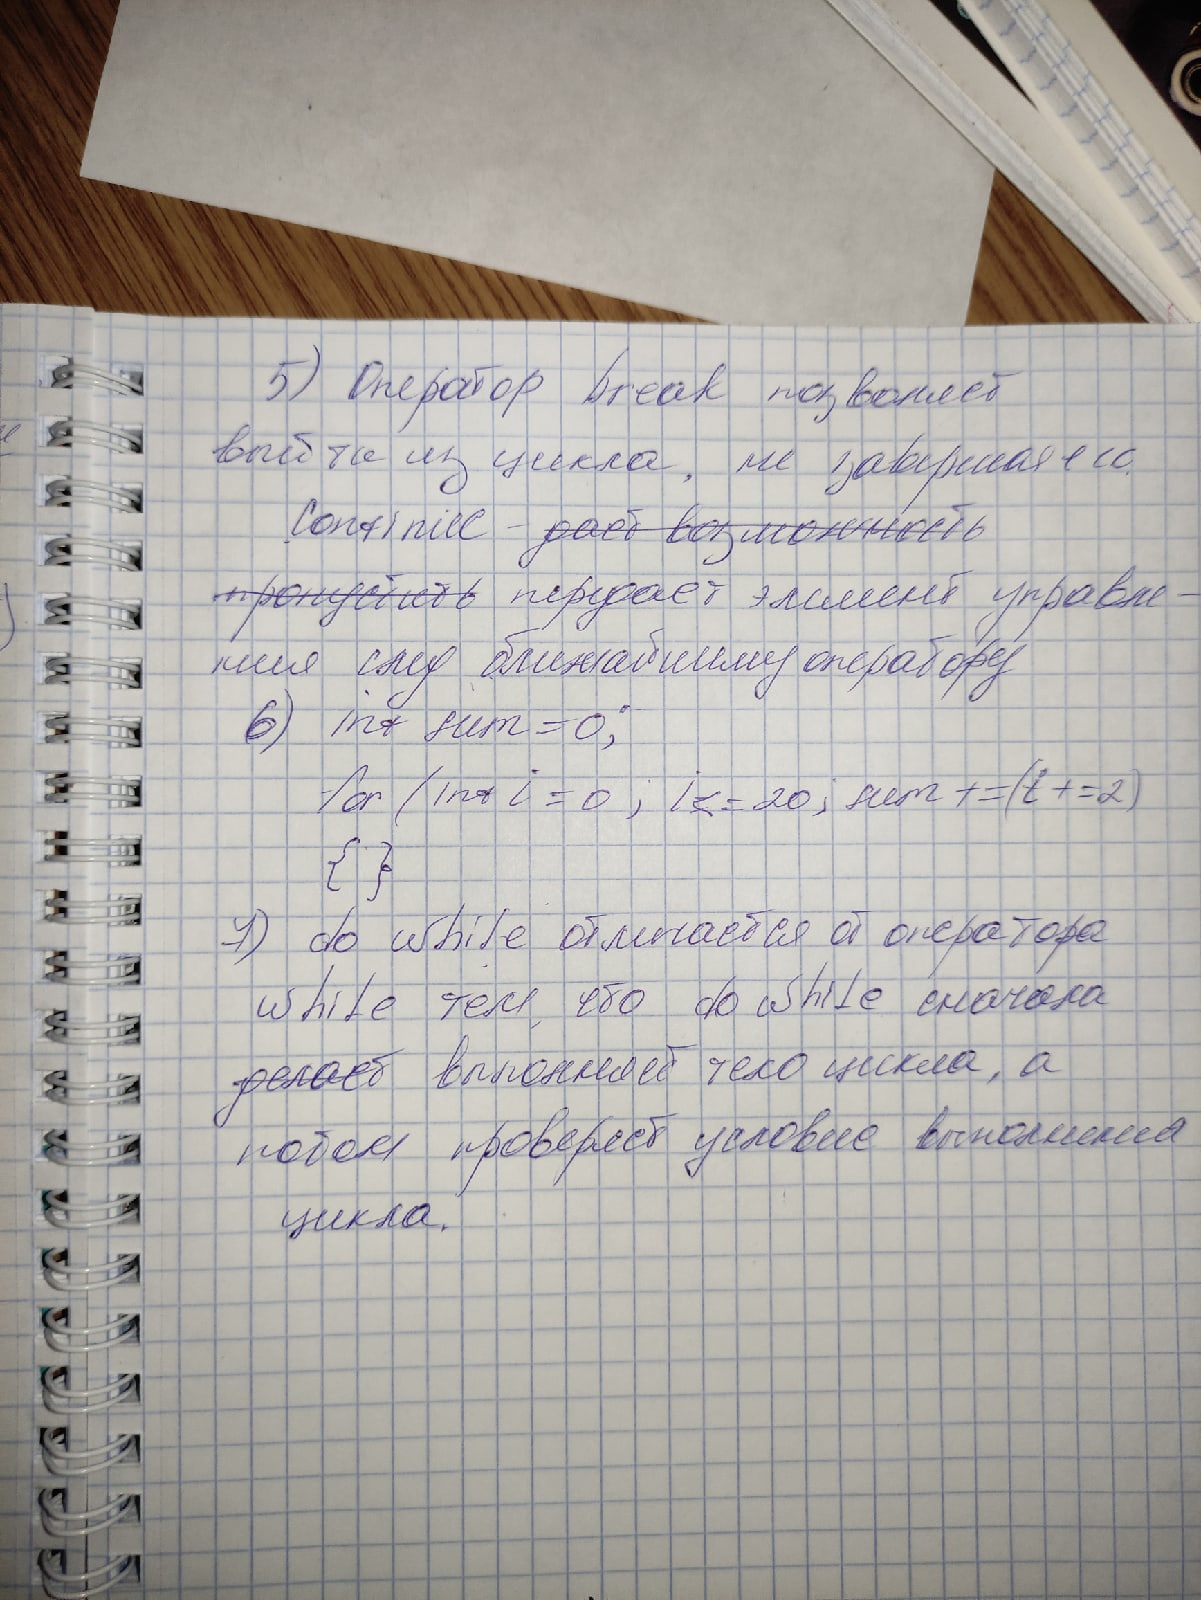 5) Оператор break позволяет
выйти из цикла, не завершая его.
Continue - дает возможность
пропустить передает элемент управле-
ния след ближайшему оператору
6) int sum = 0;
for (int i = 0; i <= 20; sum += (i += 2)
{ }
7) do while отличается от оператора
while тем, что do while сначала
делает выполняет тело цикла, а
потом проверяет условие выполнения
цикла.